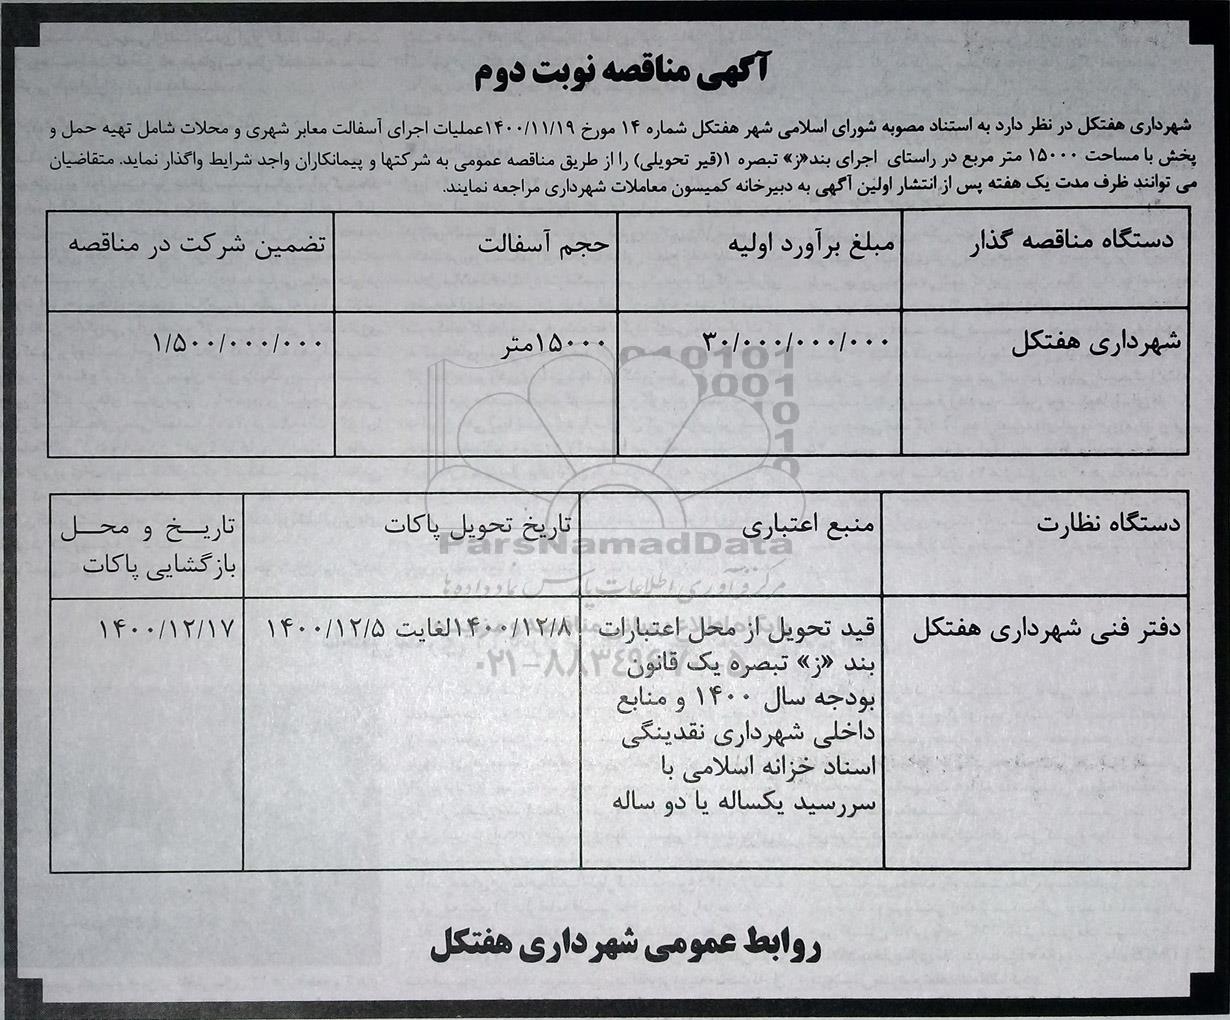 آگهی مناقصه نوبت دوم
شهرداری هفتکل در نظر دارد به استناد مصوبه شورای اسلامی شهر هفتکل شماره ۱۴ مورخ ۱۴۰۰/۱۱/۱۹عملیات اجرای آسفالت معابر شهری و محلات شامل تهیه حمل و
پخش با مساحت ۱۵۰۰۰ متر مربع در راستای اجرای بند«ز» تبصره ۱(قیر تحویلی) را از طریق مناقصه عمومی به شرکتها و پیمانکاران واجد شرایط واگذار نماید. متقاضیان
می توانند ظرف مدت یک هفته پس از انتشار اولین آگهی به دبیرخانه کمیسون معاملات شهرداری مراجعه نمایند.
دستگاه مناقصه گذار
مبلغ برآورد اولیه
حجم آسفالت
تضمین شرکت در مناقصه
شهرداری هفتکل
۳۰/۰۰۰/۰۰۰/۰۰۰
۱۵۰۰۰متر
۱/۵۰۰/۰۰۰/۰۰۰
دستگاه نظارت
منبع اعتباری
تاریخ تحویل پاکات
تاریخ و محل
بازگشایی پاکات
دفتر فنی شهرداری هفتکل
قید تحویل از محل اعتبارات
بند «ز» تبصره یک قانون
بودجه سال ۱۴۰۰ و منابع
داخلی شهرداری نقدینگی
اسناد خزانه اسلامی با
سررسید یکساله یا دو ساله
۱۴۰۰/۱۲/۸لغایت ۱۴۰۰/۱۲/۵
۱۴۰۰/۱۲/۱۷
ParsNamadData
مرکز فرآوری اطلاعات پارس نماد داده ها
روابط عمومی شهرداری هفتکل